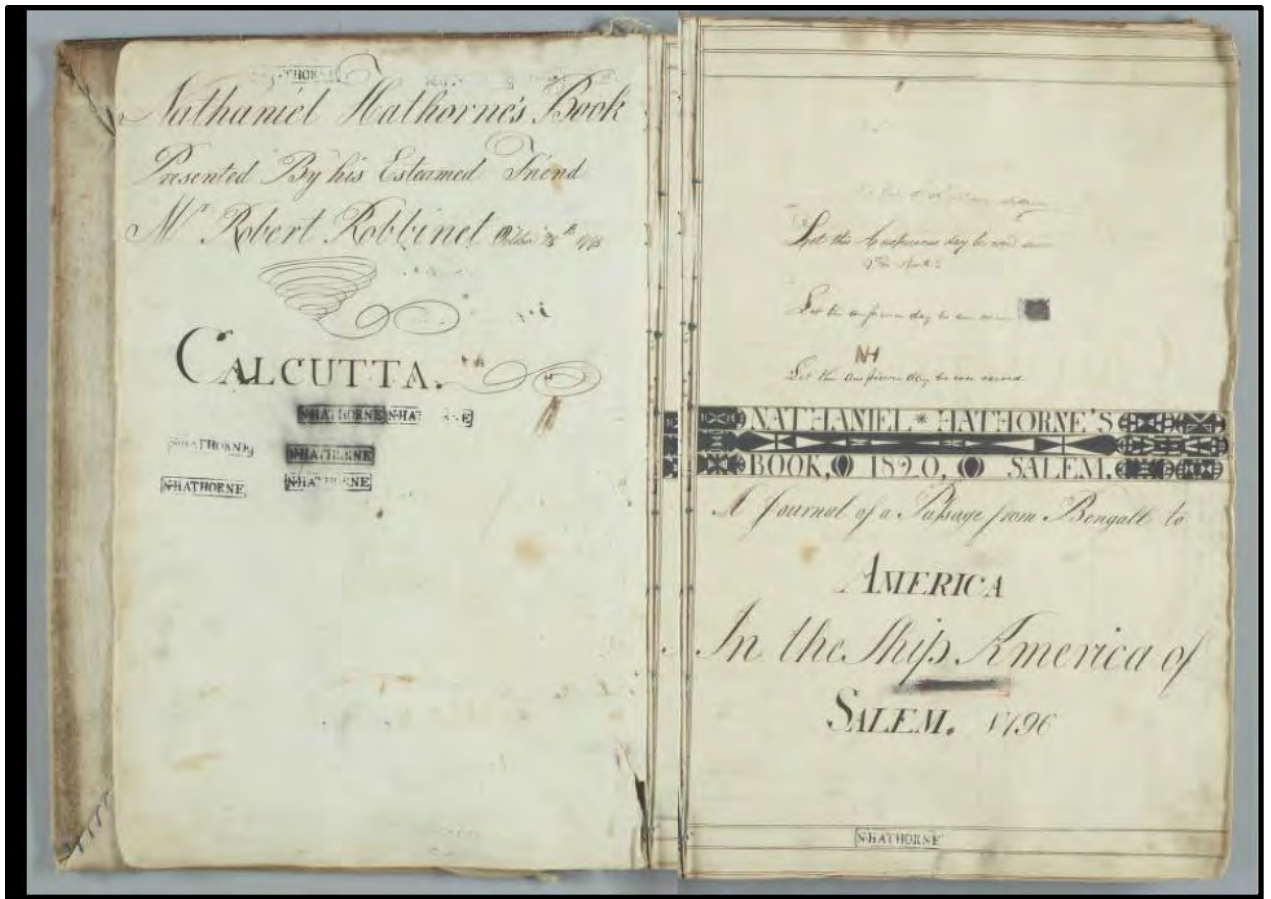 HORNE
Nathaniel Hathorne's Book
Presented By his Esteamed Friend
Mr Robert Robbinet October 28th 1795
CALCUTTA.
N·HATHORNE N·HAT NE
N·HATHORNE
N·HATHORNE
N·HATHORNE
N·HATHORNE
Let this Auspicious day be now
Let the auspicious day be
NH
Let the auspicious day be now record
NATHANIEL * HATHORNE'S
BOOK, 1820, SALEM.
A Journal of a Passage from Bengall to
AMERICA
In the Ship America of
SALEM. 1796
N·HATHORNE